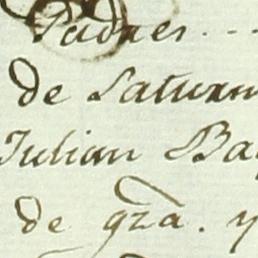 Padres
de Saturn
Julian Ba
de gza. y